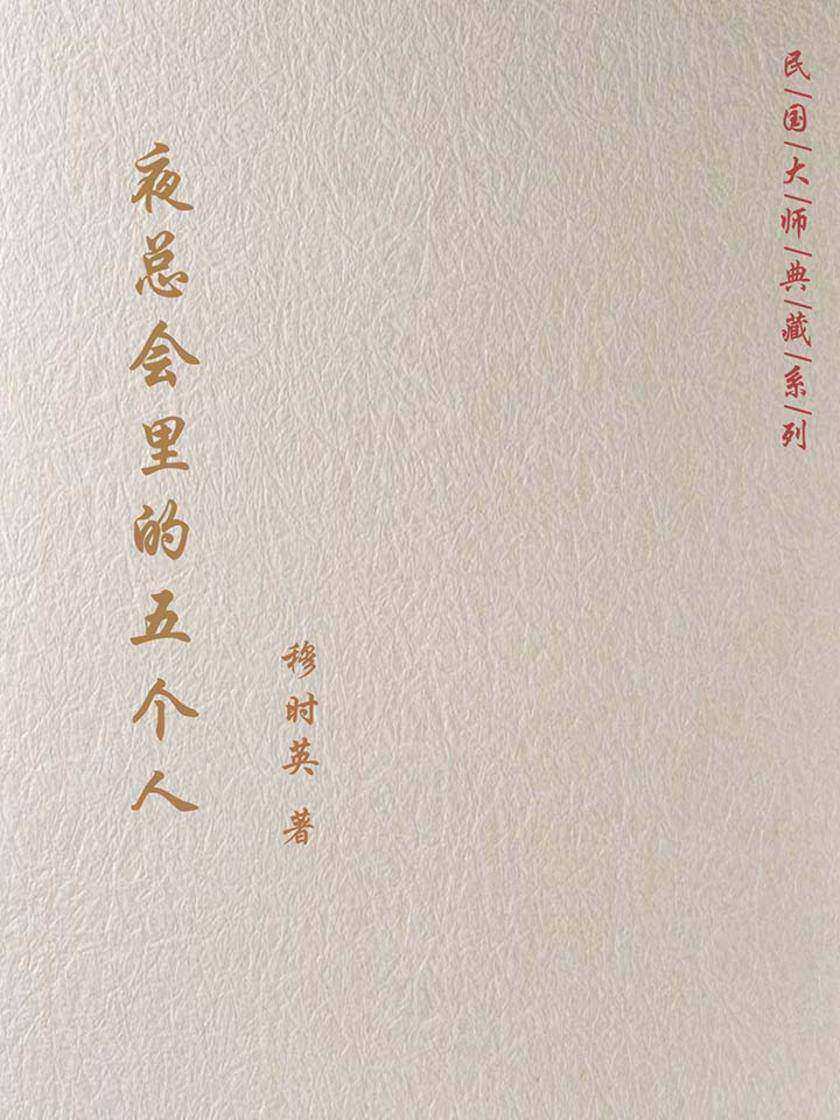 民/国/大/师/典/藏/系/列
穆时英 著
夜总会里的五个人